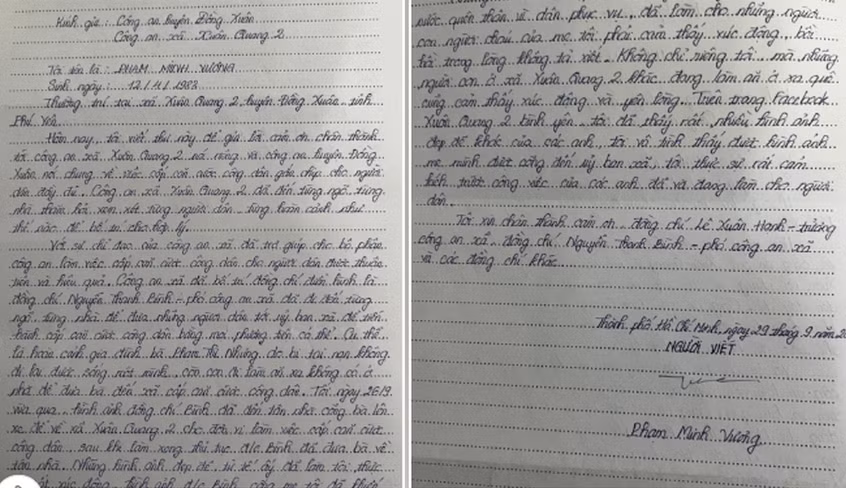 Kính gửi: Công an huyện Đồng Xuân
Công an xã Xuân Quang 2
Tôi tên là: PHẠM MINH VƯƠNG
Sinh ngày: 12/4/1983
Thường trú tại xã Xuân Quang 2, huyện Đồng Xuân, tỉnh
Phú Yên.
Hôm nay, tôi viết thư này để gửi lời cảm ơn chân thành
tới công an xã Xuân Quang 2 nói riêng và công an huyện Đồng
Xuân nói chung về việc cấp căn cước công dân gắn chíp cho người
dân đầy đủ. Công an xã Xuân Quang 2 đã đến từng ngõ từng
nhà thăm hỏi xem xét từng người dân từng hoàn cảnh như
thế nào để bố trí cho hợp lý.
Với sự chỉ đạo của công an xã đã trợ giúp cho bộ phận
công an làm việc cấp căn cước công dân cho người dân được thuận
tiện và hiệu quả. Công an xã đã bố trí đồng chí điển hình là
đồng chí Nguyễn Thanh Bình - phó công an xã đã đi đến từng
ngõ từng nhà để đưa những người dân tới uỷ ban xã để tiến
hành cấp căn cước công dân bằng mọi phương tiện có thể. Cụ thể
là hoàn cảnh gia đình bà Phạm Thị Nhung do bị tai nạn không
đi lại được sống một mình, còn con đi làm ăn xa không có ở
nhà để đưa bà đến xã cấp căn cước công dân. Tới ngày 26/9
vừa qua, hình ảnh đồng chí Bình đã đến tận nhà cõng bà lên
xe để về xã Xuân Quang 2 cho đơn vị làm việc cấp căn cước
công dân sau khi làm xong thủ tục đ/c Bình đã đưa bà về
tận nhà. Những hình ảnh đẹp đẽ tử tế ấy đã làm tôi thực
xúc động, hình ảnh đ/c Bình cõng mẹ tôi đã khiến
nước quên thân vì dân phục vụ, đã làm cho những người
con người cháu của mẹ tôi phải cảm thấy xúc động, bồi
hồi trong lòng không tả xiết. Không chỉ riêng tôi, mà những
người con ở xã Xuân Quang 2 khác đang làm ăn ở xa quê
cũng cảm thấy xúc động và yên lòng. Trên trang Facebook
Xuân Quang 2 bình yên, tôi đã thấy rất nhiều hình ảnh
đẹp đẽ khác của các anh, tôi vô tình thấy được hình ảnh
mẹ mình được cõng đến uỷ ban xã, tôi thực sự rất cảm
kích trước công việc của các anh đã và đang làm cho người
dân.
Tôi xin chân thành cảm ơn, đồng chí Lê Xuân Hạnh - trưởng
công an xã, đồng chí Nguyễn Thanh Bình - phó công an xã
và các đồng chí khác.
Thành phố Hồ Chí Minh, ngày 29 tháng 9 năm
NGƯỜI VIẾT
Phạm Minh Vương